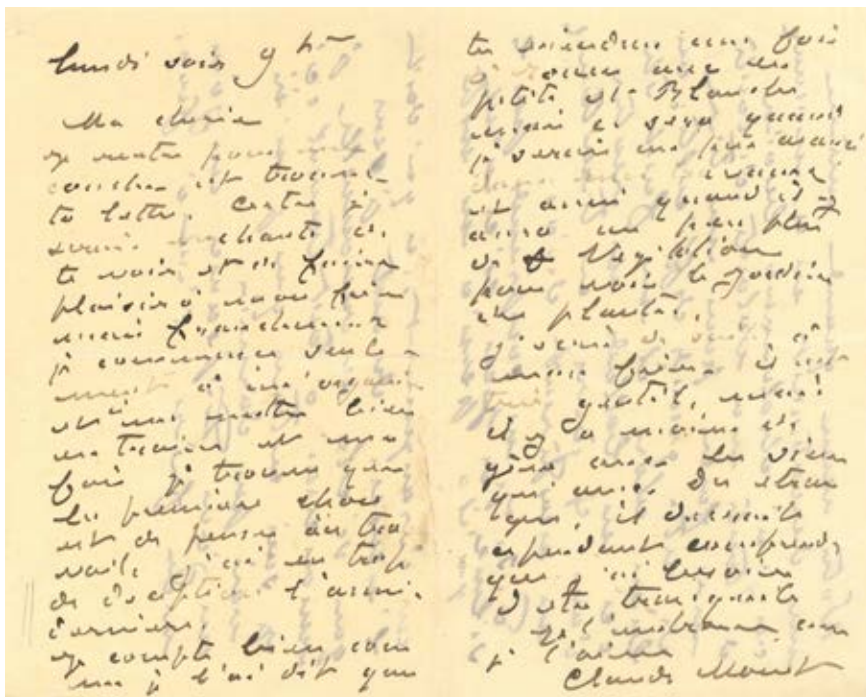 lundi soir 9h
Ma chérie
je rentre pour me
coucher et trouve
ta lettre. Certes je
serais enchanté de
te voir et de faire
plaisir à mon frère
mais franchement
je commence seule-
ment à m'organiser
et à me mettre bien
en train et une
fois je trouve que
la première chose
est de penser au tra
vail, j'ai eu trop
de déceptions l'année
dernière.
Je compte bien com
me je l'ai dit que
tu viendras une fois
à avec les
petits et Blanche
mais ce sera quand
je serai un peu avancé
et aussi quand il y
aura un peu plus
de végétation
pour voir le jardin
des plantes.
à
mon frère il est
très gentil, mais
il y a moins de
gêne avec les siens
qu'avec des étran
gers, il devrait
cependant comprendre
que j'ai besoin
d'être tranquille
Je t'embrasse comme
je t'aime
Claude Monet